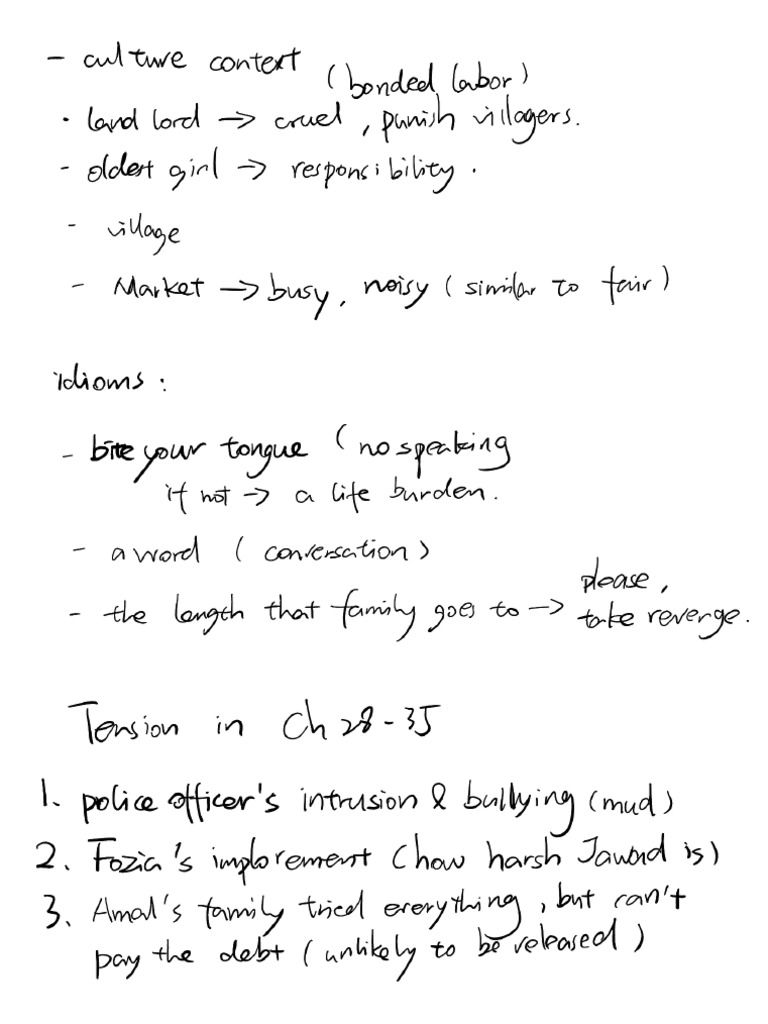 - culture context (bonded labor)
· land lord → cruel, punish villagers.
- oldest girl → responsibility.
- village
- Market → busy, noisy (similar to fair)
idioms:
- bite your tongue (no speaking
if not → a life burden.
- a word (conversation)
- the length that family goes to → please,
take reverge.
Tension in Ch 28-35
1. police officer's intrusion & bullying (mud)
2. Fozia's implorement (how harsh Jawad is)
3. Amal's family tried everything, but can't
pay the debt (unlikely to be released)